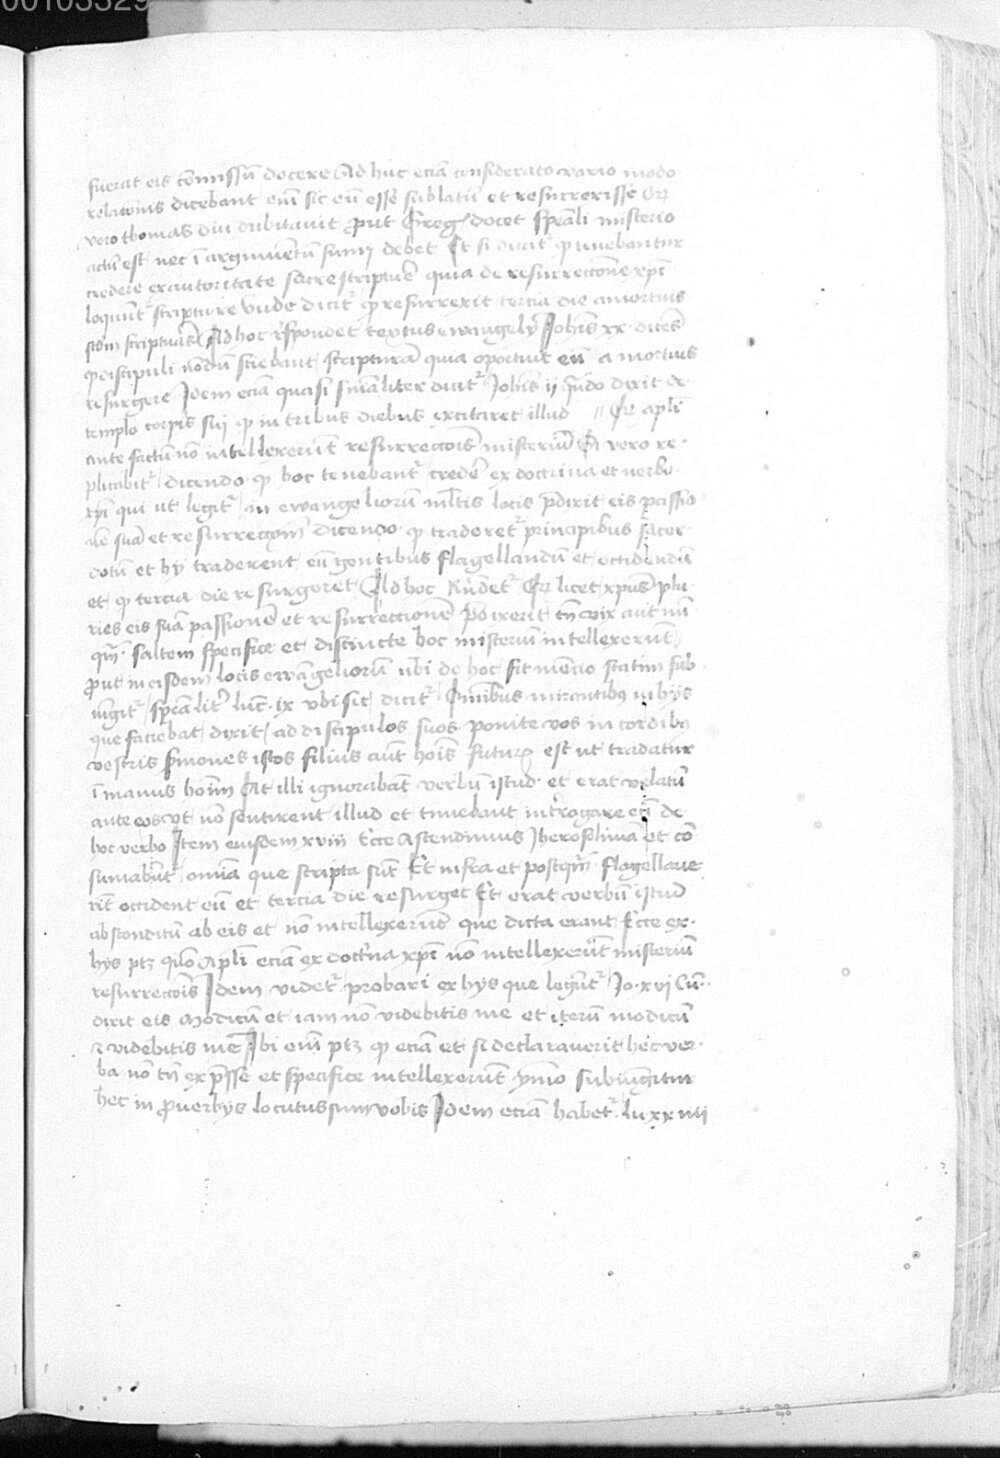 00103329
fuerat eis cõmissũ docere Ad huc eciã considerato vario modo
relacionis dicebant eni͂ sic eũ esse sublatũ et resurrexisse
vero thomas diu dubitauit put Greg docet speãli misterio
actũ est nec ĩ argumentũ sumi debet Et si dicat͛ q̃ tenebantur
credere ex autoritate sacre scripture quia de resurreccione xpĩ
loqunt͛ scripture Unde dicit͛ q̃ resurrexit tercia die a mortuis
scdm scripturas Ad hoc respondet textus ewangelij Johis xx dicẽs
q̃ discipuli nõdũ sciebant scripturã quia oportuit eũ a mortuis
resurgere Idem eciã quasi similiter dicit͛ Johis ij qñdo dixit de
templo corpis sui q̃ in tribus diebus excitaret illud apli
ante factũ nõ intellexerunt resurreccois misteriũ Si vero re
plicabit͛ dicendo q̃ hoc tenebant͛ credẽ ex doctrina et verbo
xpĩ qui ut legit͛ in ewangeliorũ mltis locis pdixit eis passio
nẽ suã et resurreccõm dicendo q̃ traderet͛ principibus sacer
dotũ et hij traderent eũ gentibus flagellandũ et occidendũ
et q̃ tercia die resurgeret Ad hoc Rñdet͛ licet xpus plu
ries eis suã passionẽ et resurrectionẽ pdixerit tñ vix aut nũ
qm̃ saltem specifice et distincte hoc misterium intellexerũt
put in eisdem locis ewãgeliorũ ubi de hoc fit mẽcio statim sub
iũgit͛ speãlit͛ luc ix ubi sic dicit͛ Omnibus mirantibus in hijs
que faciebat dixit ad discipulos suos ponite vos in cordibus
vestris smones istos filius aut hois futurũ est ut tradatur
ĩ manus hoĩm At illi ignorabãt verbũ istud et erat velatũ
ante eos ut nõ sentirent illud et timebant introgare eũ de
hoc verbo Item eiusdem xviii Ecce Ascendimus Jherosolimã et cõ
sumabũt͛ omnia que scripta sũt Et infra et postqm̃ flagellaue
rĩt occident eũ et tercia die resurget Et erat verbũ istud
absconditũ ab eis et nõ intellexerũt que dicta erant Ecce ex
hijs ptz quõ Apli eciã ex doctrina xpĩ nõ intellexerũt misteriũ
resurreccois Idem videt͛ probari ex hijs que legũt͛ Jo xvi Cũ
dixit eis Modicũ et iam nõ videbitis me et iterũ modicũ
et videbitis me Ibi eni͂ ptz q̃ eciã et si declarauerit hec ver
ba nõ tñ expresse et specifice intellexerũt ymo subiũgitur
hec in puerbijs locutus sum vobis Idem eciã habet͛ lu xxiiii